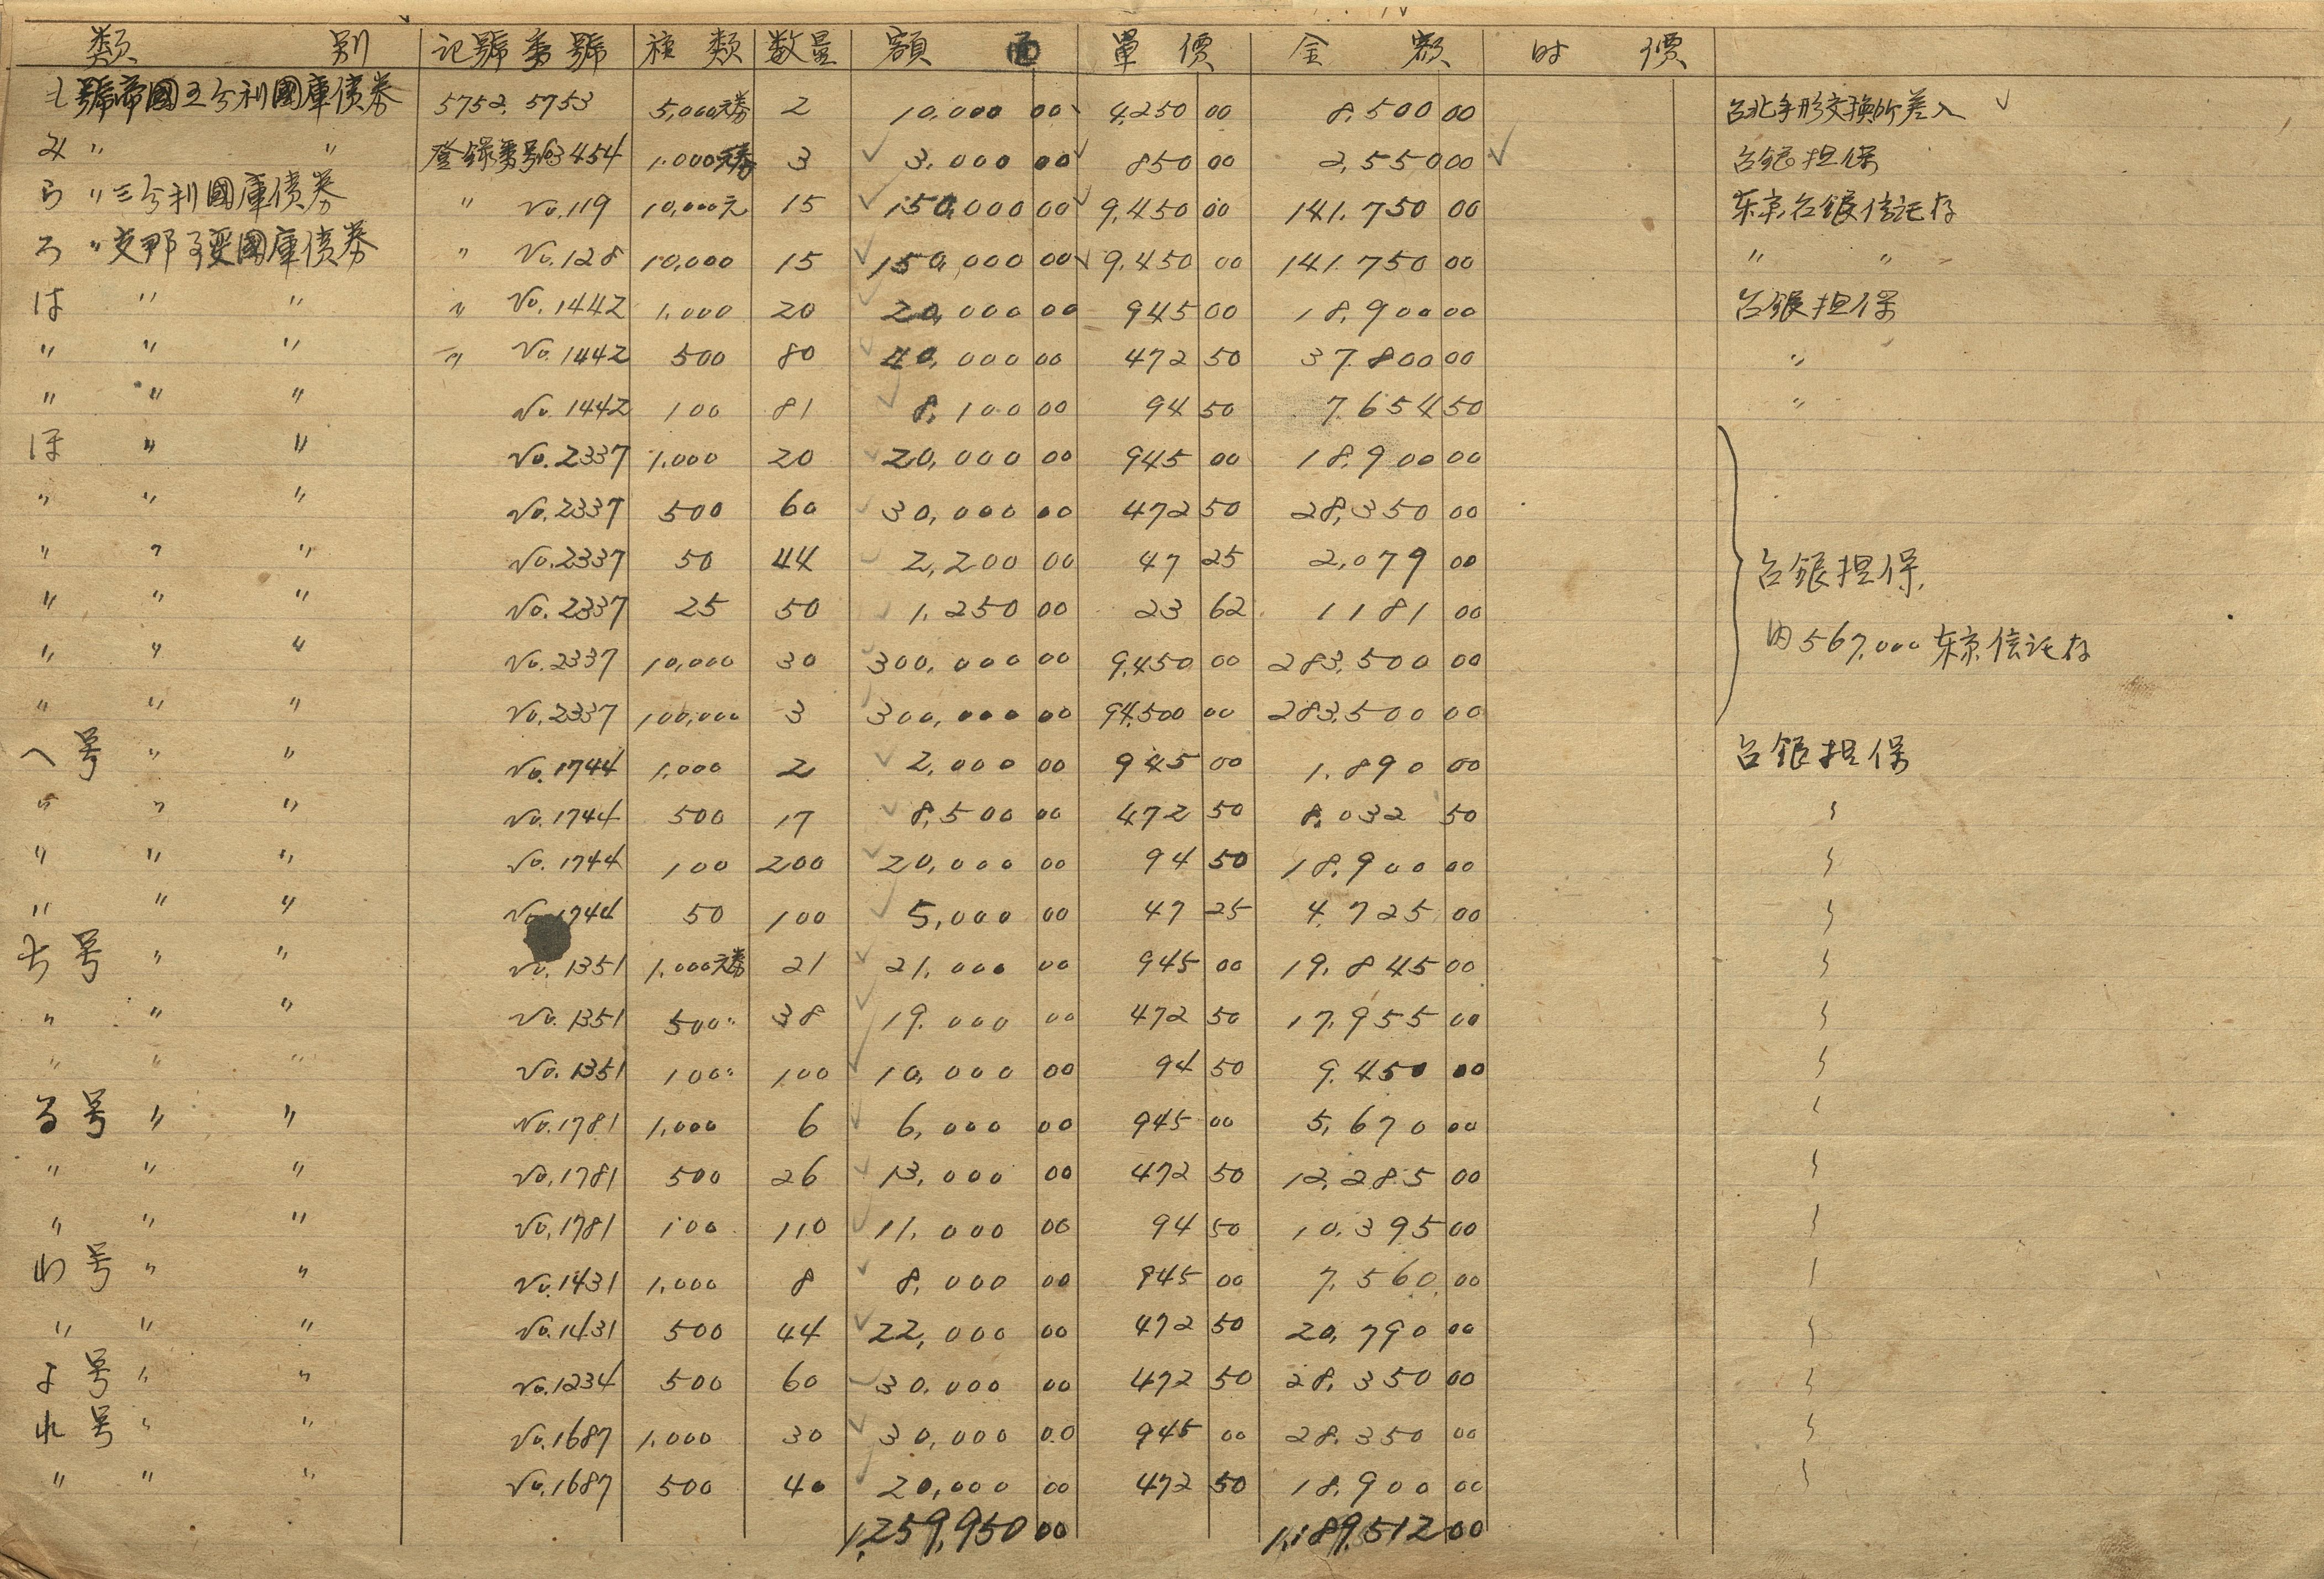 類 別 記號番號 種類 数量 額面 單價 金額 时價
七號帝國五分利國庫債券 5752, 5753 5,000元券 2 10,000 00 4,250 00 8,500 00 台北手形交換所差入
み 〃 〃 登録番号63454 1,000元券 3 3,000 00 850 00 2,550 00 台銀担保
ら 〃 三分利國庫債券 〃 No.119 10,000元 15 150,000 00 9,450 00 141,750 00 东京台銀信託存
ろ 〃 支那事変國庫債券 〃 No.128 10,000 15 150,000 00 9,450 00 141,750 00 〃 〃
は 〃 〃 〃 No.1442 1,000 20 20,000 00 945 00 18,900 00 台銀担保
〃 〃 〃 〃 No.1442 500 80 40,000 00 472 50 37,800 00 〃
〃 〃 〃 No.1442 100 81 8,100 00 94 50 7,654 50 〃
ほ 〃 〃 No.2337 1,000 20 20,000 00 945 00 18,900 00
〃 〃 〃 No.2337 500 60 30,000 00 472 50 28,350 00
〃 〃 〃 No.2337 50 44 2,200 00 47 25 2,079 00 台銀担保,
〃 〃 〃 No.2337 25 50 1,250 00 23 62 1181 00
〃 〃 〃 No.2337 10,000 30 300,000 00 9,450 00 283,500 00 内567,000东京信託存
〃 〃 〃 No.2337 100,000 3 300,000 00 94,500 00 283,500 00
へ号 〃 〃 No.1744 1,000 2 2,000 00 945 00 1,890 00 台銀担保
〃 〃 〃 No.1744 500 17 8,500 00 472 50 8,032 50 〃
〃 〃 〃 No.1744 100 200 20,000 00 94 50 18,900 00 〃
〃 〃 〃 No.1744 50 100 5,000 00 47 25 4,725 00 〃
ち号 〃 〃 No.1351 1,000元券 21 21,000 00 945 00 19,845 00 〃
〃 〃 〃 No.1351 500〃 38 19,000 00 472 50 17,955 00 〃
〃 〃 〃 No.1351 100〃 100 10,000 00 94 50 9,450 00 〃
る号 〃 〃 No.1781 1,000 6 6,000 00 945 00 5,670 00 〃
〃 〃 〃 No.1781 500 26 13,000 00 472 50 12,285 00 〃
〃 〃 〃 No.1781 100 110 11,000 00 94 50 10,395 00 〃
わ号 〃 〃 No.1431 1,000 8 8,000 00 945 00 7,560 00 〃
〃 〃 〃 No.1431 500 44 22,000 00 472 50 20,790 00 〃
よ号 〃 〃 No.1234 500 60 30,000 00 472 50 28,350 00 〃
れ号 〃 〃 No.1687 1,000 30 30,000 00 945 00 28,350 00 〃
〃 〃 〃 No.1687 500 40 20,000 00 472 50 18,900 00 〃
1,259,950 00 1,189,512 00